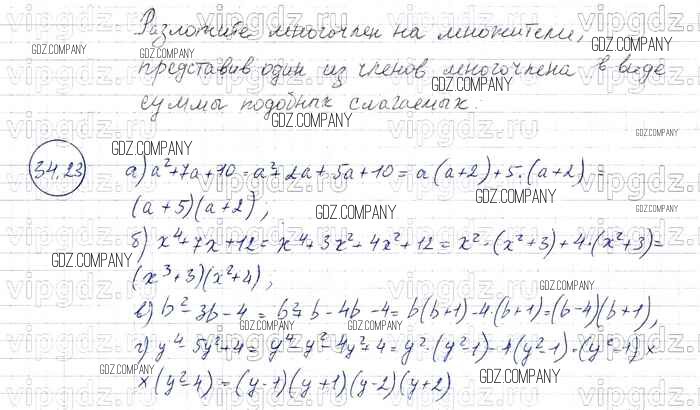 Разложите многочлен на множители,
представив один из членов многочлена в виде
суммы подобных слагаемых.
34.23
а) a²+7a+10 = a²+2a+5a+10 = a(a+2)+5·(a+2) =
(a+5)(a+2);
б) x⁴+7x+12 = x⁴+3x²+4x²+12 = x²·(x²+3)+4·(x²+3) =
(x³+3)(x²+4);
в) b²-3b-4 = b²+b-4b-4 = b(b+1)-4·(b+1) = (b-4)(b+1);
г) y⁴-5y²+4 = y⁴-y²-4y²+4 = y²·(y²-1)-4(y²-1) = (y²-1)×
×(y²-4) = (y-1)(y+1)(y-2)(y+2)
GDZ.COMPANY
vipgdz.ru